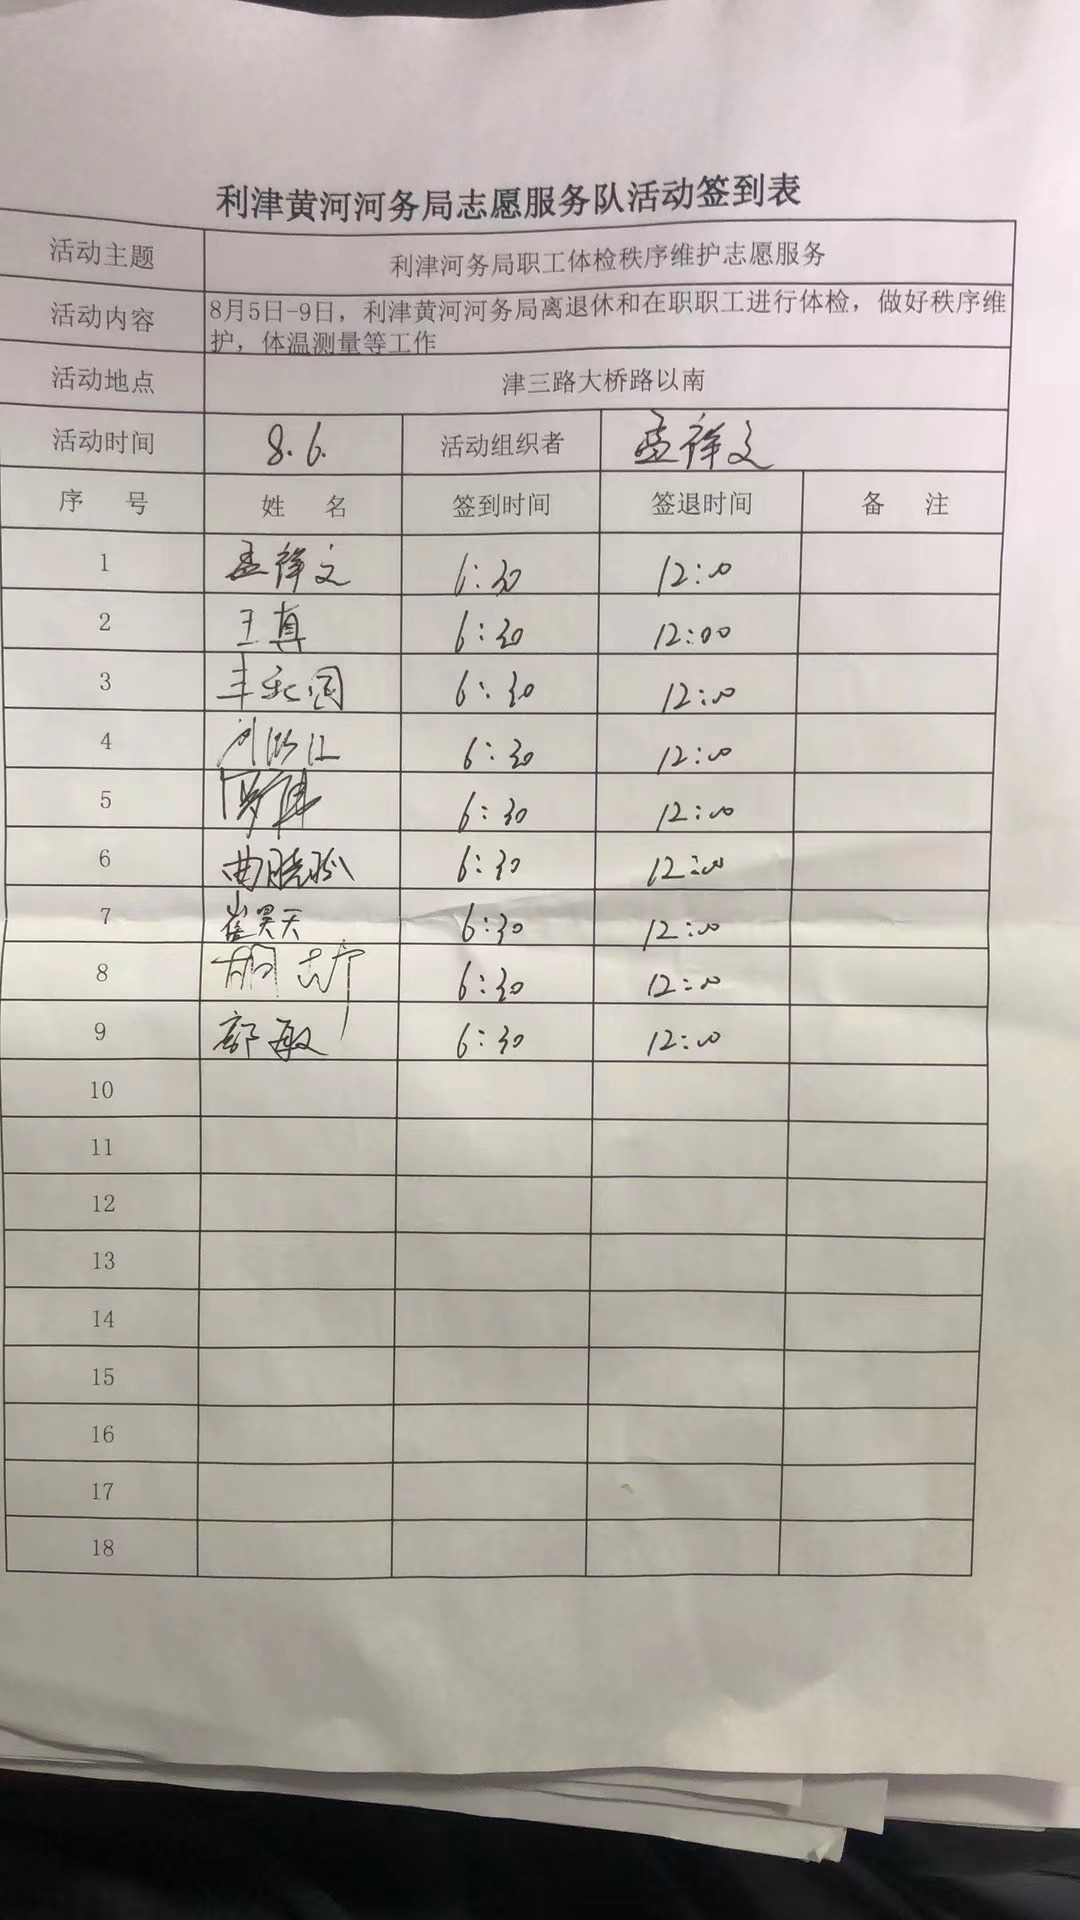 利津黄河河务局志愿服务队活动签到表
活动主题 利津河务局职工体检秩序维护志愿服务
活动内容 8月5日-9日，利津黄河河务局离退休和在职职工进行体检，做好秩序维
护，体温测量等工作
活动地点 津三路大桥路以南
活动时间 8.6. 活动组织者 孟祥文
序 号 姓 名 签到时间 签退时间 备 注
1 孟祥文 6:30 12:00
2 王真 6:30 12:00
3 6:30 12:00
4 6:30 12:00
5 6:30 12:00
6 曲晓 6:30 12:00
7 崔昊天 6:30 12:00
8 胡 6:30 12:00
9 郭敏 6:30 12:00
10
11
12
13
14
15
16
17
18